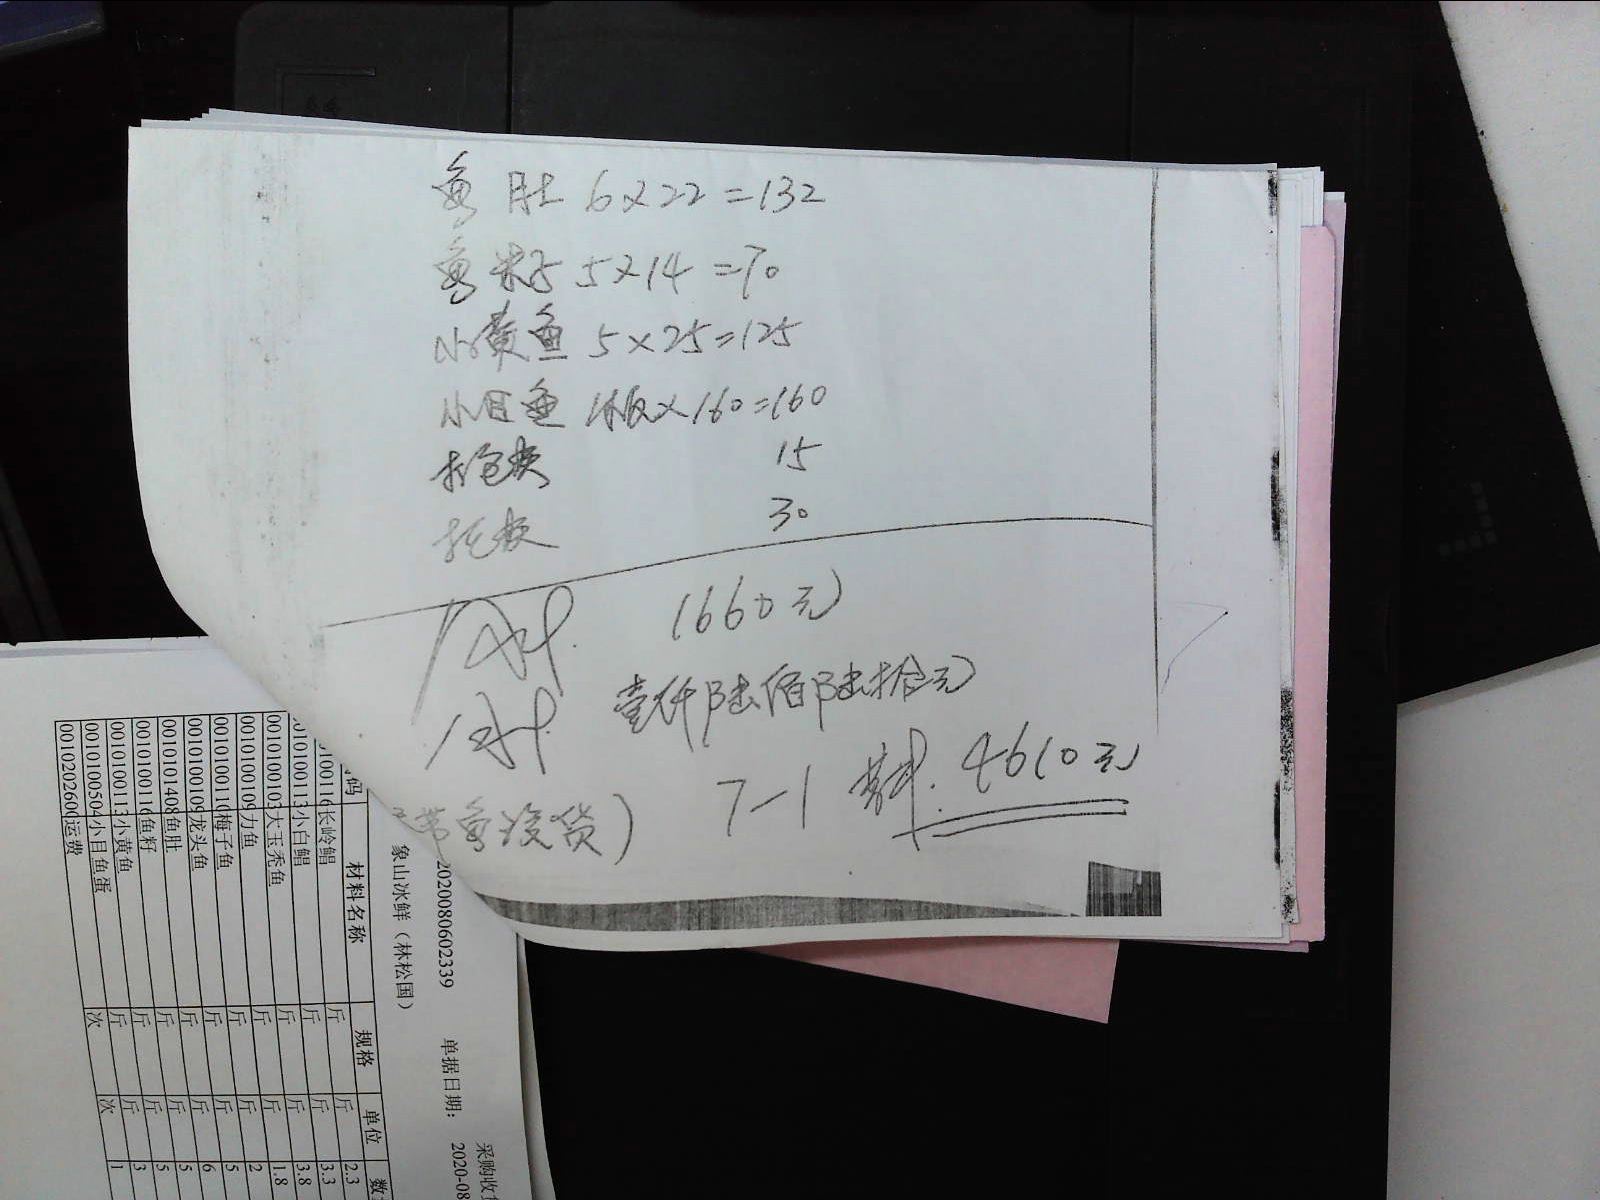 鱼肚 6×22=132
鱼籽 5×14=70
小黄鱼 5×25=125
小目鱼 1板×160=160
打包费 15
托费 30
1660元
壹仟陆佰陆拾元
7-1 4610元
鱼没货)
采购收
2020080602339 单据日期: 2020-08
象山冰鲜(林松国)
码 材料名称 规格 单位 数
长岭鲳 斤 斤 2.3
小白鲳 斤 斤 3.3
大玉秃鱼 斤 斤 3.8
力鱼 斤 斤 1.8
梅子鱼 斤 斤 2
龙头鱼 斤 斤 5
鱼肚 斤 斤 6
鱼籽 斤 斤 5
小黄鱼 斤 斤 5
0010100504 小目鱼蛋 斤 斤 3
001020260 运费 次 次 1